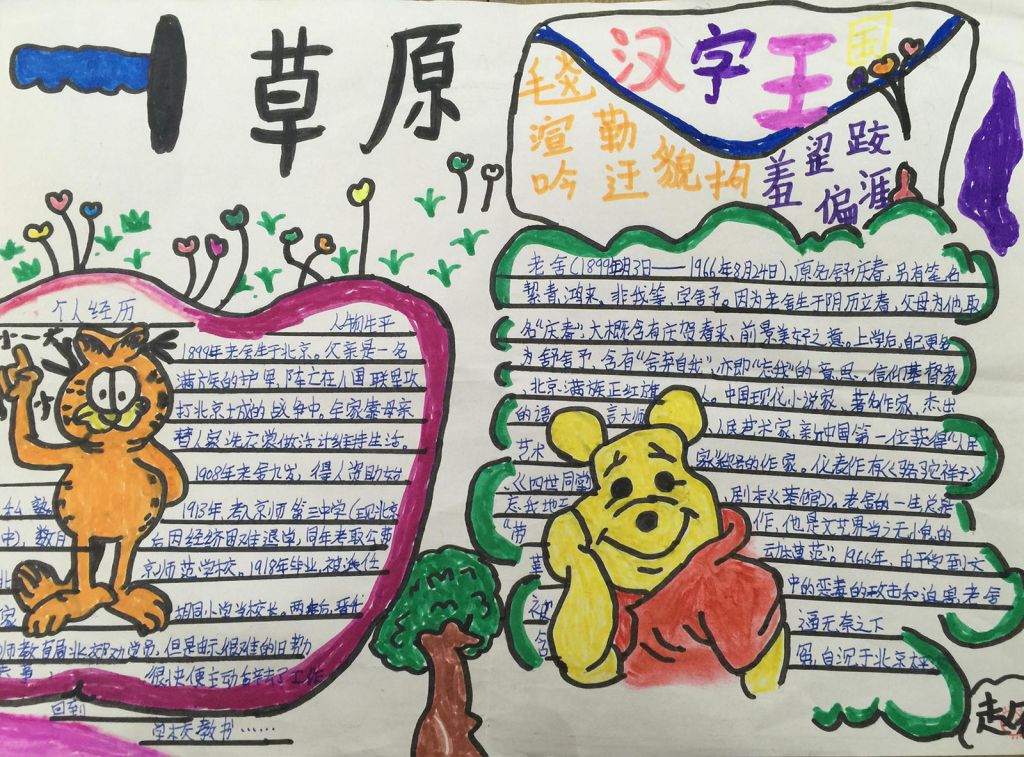 草原
汉字王国
毛 炎
渲 勒
吟 迂 貌 拘
羞 涩 跤
偏 涯
个人经历
人物生平
1899年老舍生于北京。父亲是一名
满族的护军,阵亡在八国联军攻
打北京城的战争中。全家靠母亲
替人家洗衣裳做活计维持生活。
1908年老舍九岁,得人资助始
私塾。
1913年考入京师第三中学(现北京
中),数月后因经济困难退学,同年考取公费
北京师范学校。1918年毕业,
家胡同小学当校长。两年后,晋升
师教育局北郊劝学员,但是由于很难的
很快便主动辞去了工作
回到
学校教书……
老舍(1899年2月3日——1966年8月24日),原名舒庆春,另有笔名
絜青、鸿来、非我等,字舍予。因为老舍生于阴历立春,父母为他取
名“庆春”,大概含有庆贺春来、前景美好之意。上学后,自己更名
为舒舍予,含有“舍弃自我”,亦即“忘我”的意思。信仰基督教
北京满族正红旗人。中国现代小说家、著名作家,杰出
的语言大师、人民艺术家,新中国第一位获得“人民
艺术家”称号的作家。代表作有《骆驼祥子》
、《四世同堂》剧本《茶馆》。老舍的一生,总是
忘我地工作,他是文艺界当之无愧的
“劳动模范”。1966年,由于受到文
革中的恶毒的攻击和迫害,老舍
被逼无奈之下
含冤自沉于北京太